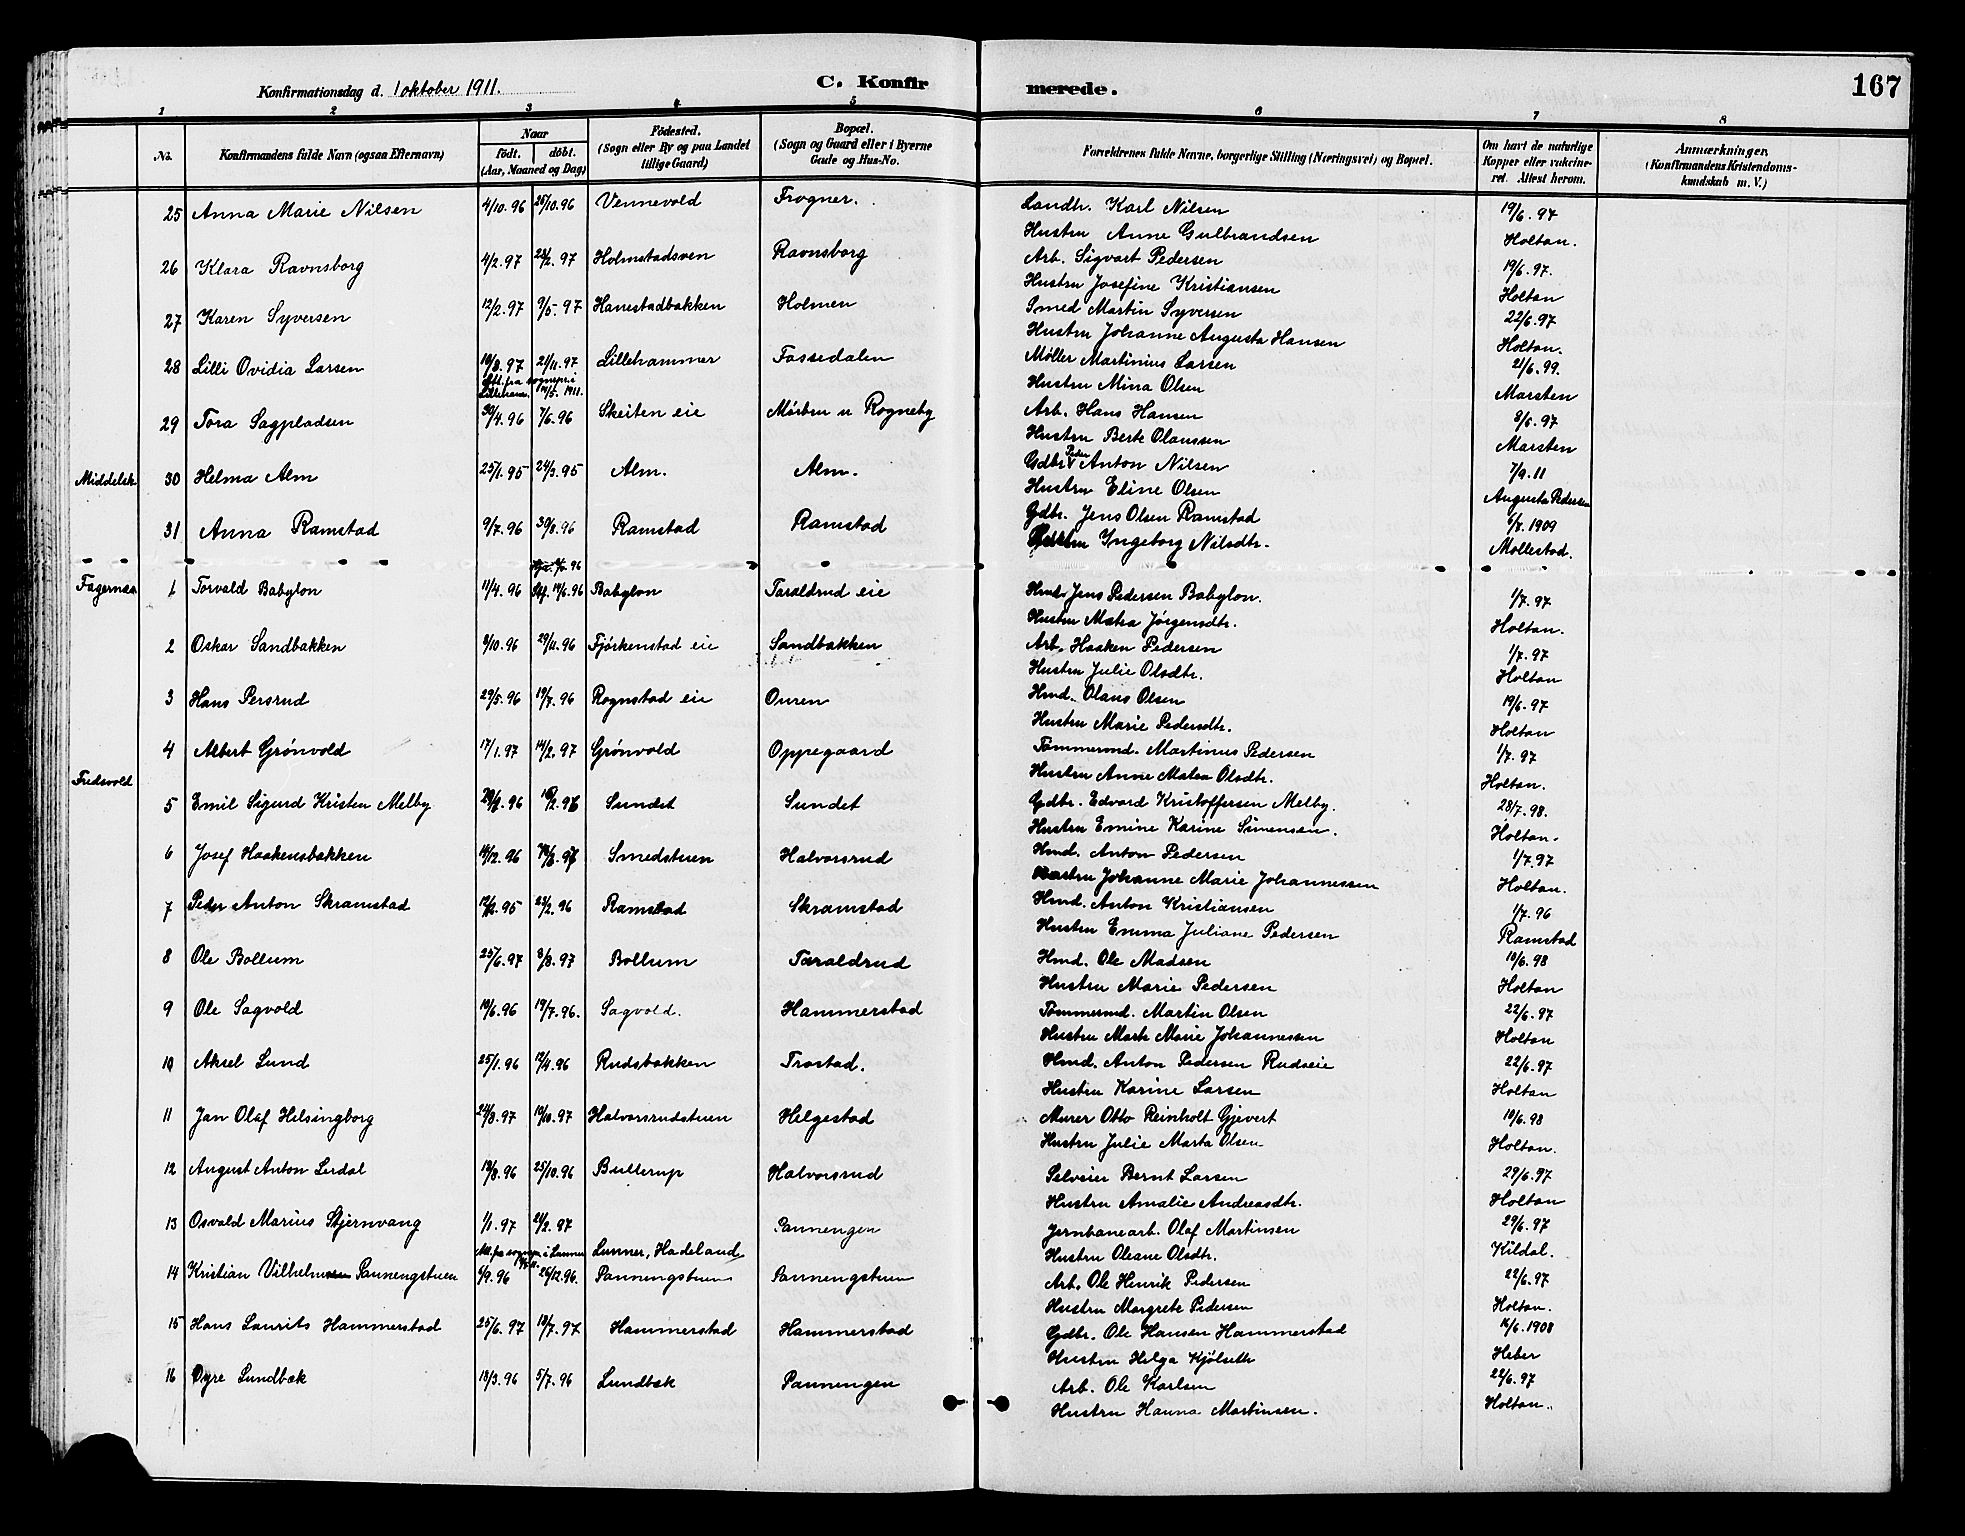 Konfirmationsdag d. 1 oktober 1911. C. Konfirmerede. 167
1 2 3 4 5 6 7 8
No. Konfirmandens fulde Navn (ogsaa Efternavn) Naar født. døbt. (Aar, Maaned og Dag) Fødested. (Sogn eller By og paa Landet tillige Gaard) Bopæl. (Sogn og Gaard eller i Byerne Gade og Hus-No. Forældrenes fulde Navne, borgerlige Stilling (Næringsvei) og Bopæl. Om havt de naturlige Kopper eller vakcineret. Attest herom. Anmærkninger, (Konfirmandens Kristendomskundskab m. V.)
25 Anna Marie Nilsen 4/10. 96 25/10. 96 Vennevold Frogner. Landh. Karl Nilsen 19/6. 97
Hustru Anne Gulbrandsen Holtan.
26 Klara Ravnsborg 4/2. 97 28/2. 97 Holmstadsven Ravnsborg Arb. Sigvart Pedersen 19/6. 97.
Hustru Josefine Kristiansen Holtan
27 Karen Syversen 12/2. 97 9/5. 97 Hanestadbakken Holmen Smed Martin Syversen 22/6. 97
Hustru Johanne Augusta Hansen Holtan.
28 Lilli Ovidia Larsen 10/8. 97 21/11. 97 Lillehammer Fossedalen Møller Martinius Larsen 21/6. 99.
Att. fra sognepr. i Lilleham. 14/5. 1911. Hustru Mina Olsen Marsten
29 Tora Sagpladsen 30/4. 96 7/6. 96 Skeiten eie Mørben u Rogneby Arb. Hans Hansen 8/6. 97
Hustru Berte Olaussen Marsten
Middelsk 30 Helma Alm 25/1. 95 24/3. 95 Alm. Alm. Gdbr. Peder Anton Nilsen 7/9. 11
Hustru Eline Olsen Augusta Pedersen
31 Anna Ramstad 9/7. 96 30/8. 96 Ramstad Ramstad Gdbr. Jens Olsen Ramstad 6/8. 1909
Hustru Ingeborg Nilsdtr. Møllestad.
Fagernes 1 Torvald Babylon 11/4. 96 Stf. 14/6. 96 Babylon Taraldrud eie Hmd. Jens Pedersen Babylon. 1/7. 97
Hustru Matea Jørgensdtr. Holtan.
2 Oskar Sandbakken 8/10. 96 29/11. 96 Fjørkenstad eie Sandbakken Arb. Haaken Pedersen 1/7. 97
Hustru Julie Olsdtr. Holtan
3 Hans Persrud 29/5. 96 19/7. 96 Rognstad eie Ouren Hmd. Olaus Olsen 19/6. 97
Hustru Marie Pedersdtr. Holtan
4 Albert Grønvold 17/1. 97 14/2. 97 Grønvold Oppegaard Tømmermd. Martinus Pedersen 1/7. 97
Hustru Anne Matea Olsdtr. Holtan.
Fredsvold
5 Emil Sigurd Kristen Melby Sundet Sundet Gdbr. Edvard Kristoffersen Melby. 28/7. 98.
Hustru Emine Karine Simensen. Holtan.
6 Josef Haakensbakken 14/12. 96 Smedstuen Halvorsrud Hmd. Anton Pedersen 1/7. 97
Hustru Johanne Marie Johannessen Holtan.
7 Peder Anton Skramstad 12/12. 95 23/2. 96 Ramstad Skramstad Hmd. Anton Kristiansen 1/7. 96
Hustru Emma Juliane Pedersen Ramstad
8 Ole Bollum 25/6. 97 8/8. 97 Bollum Taraldrud Hmd. Ole Madsen 10/6. 98
Hustru Marie Pedersen Holtan
9 Ole Sagvold 10/6. 96 19/7. 96. Sagvold. Hammerstad Tømmermd. Martin Olsen 22/6. 97
Hustru Marte Marie Johannessen Holtan
10 Aksel Lund 25/1. 96 12/4. 96 Rudsbakken Trostad. Hmd. Anton Pedersen Rudseie 22/6. 97
Hustru Karine Larsen Holtan
11 Jan Olaf Helsingborg 24/8. 97 10/10. 97 Halvorsrudstuen Helgestad Murer Otto Reinholt Gjevert 10/6. 98
Hustru Julie Marta Olsen Holtan.
12 August Anton Lerdal 19/8. 96 25/10. 96 Bullerup Halvorsrud Selveier Bernt Larsen 29/6. 97
Hustru Amalie Andreasdtr. Holtan
13 Osvald Marius Stjernvang 1/1. 97 21/2. 97 Panningen Jernbanearb. Olaf Martinsen 29/6. 97
Att. fra sognepr. i Lunner Lunner, Hadeland Hustru Oleane Olsdtr. Kildal.
14 Kristian Vilhelm Panningstuen 6/9. 96 26/12. 96. Panningstuen Panningstuen Arb. Ole Henrik Pedersen 22/6. 97
Hustru Margrete Pedersen Holtan.
15 Hans Laurits Hammerstad 25/6. 97 18/7. 97 Hammerstad Hammerstad Gdbr. Ole Hansen Hammerstad 16/6. 1908
Hustru Helga Kjølseth Heber
16 Dyre Lundbæk 18/3. 96 5/7. 96 Lundbæk Panningen Arb. Ole Karlsen 22/6. 97
Hustru Hanna Martinsen. Holtan.